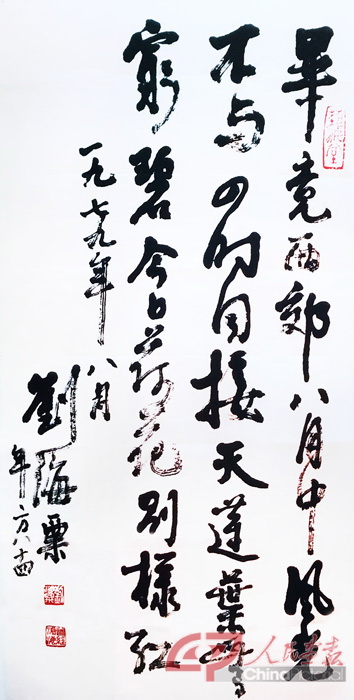 畢竟西郊八月中風光
不与四时同接天蓮葉無
窮碧今日荷花别樣红
一九七九年八月
劉海粟
年方八十四
人民画报